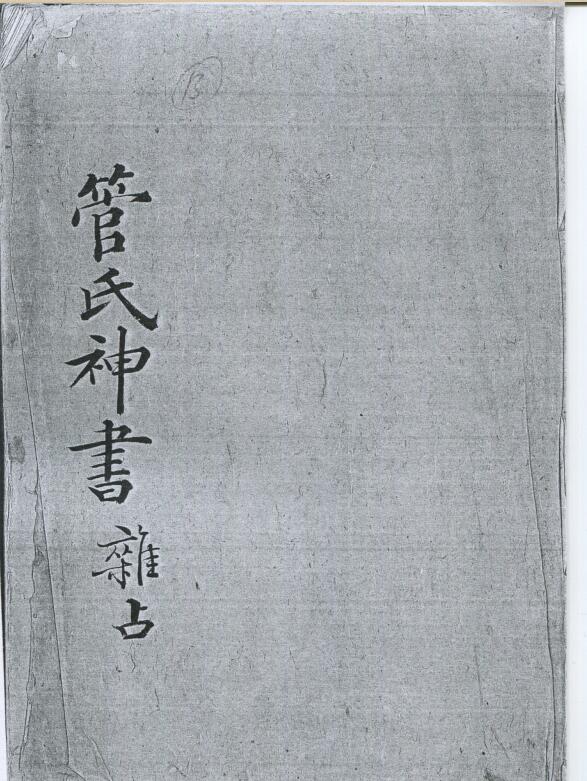 管氏神書 雜占